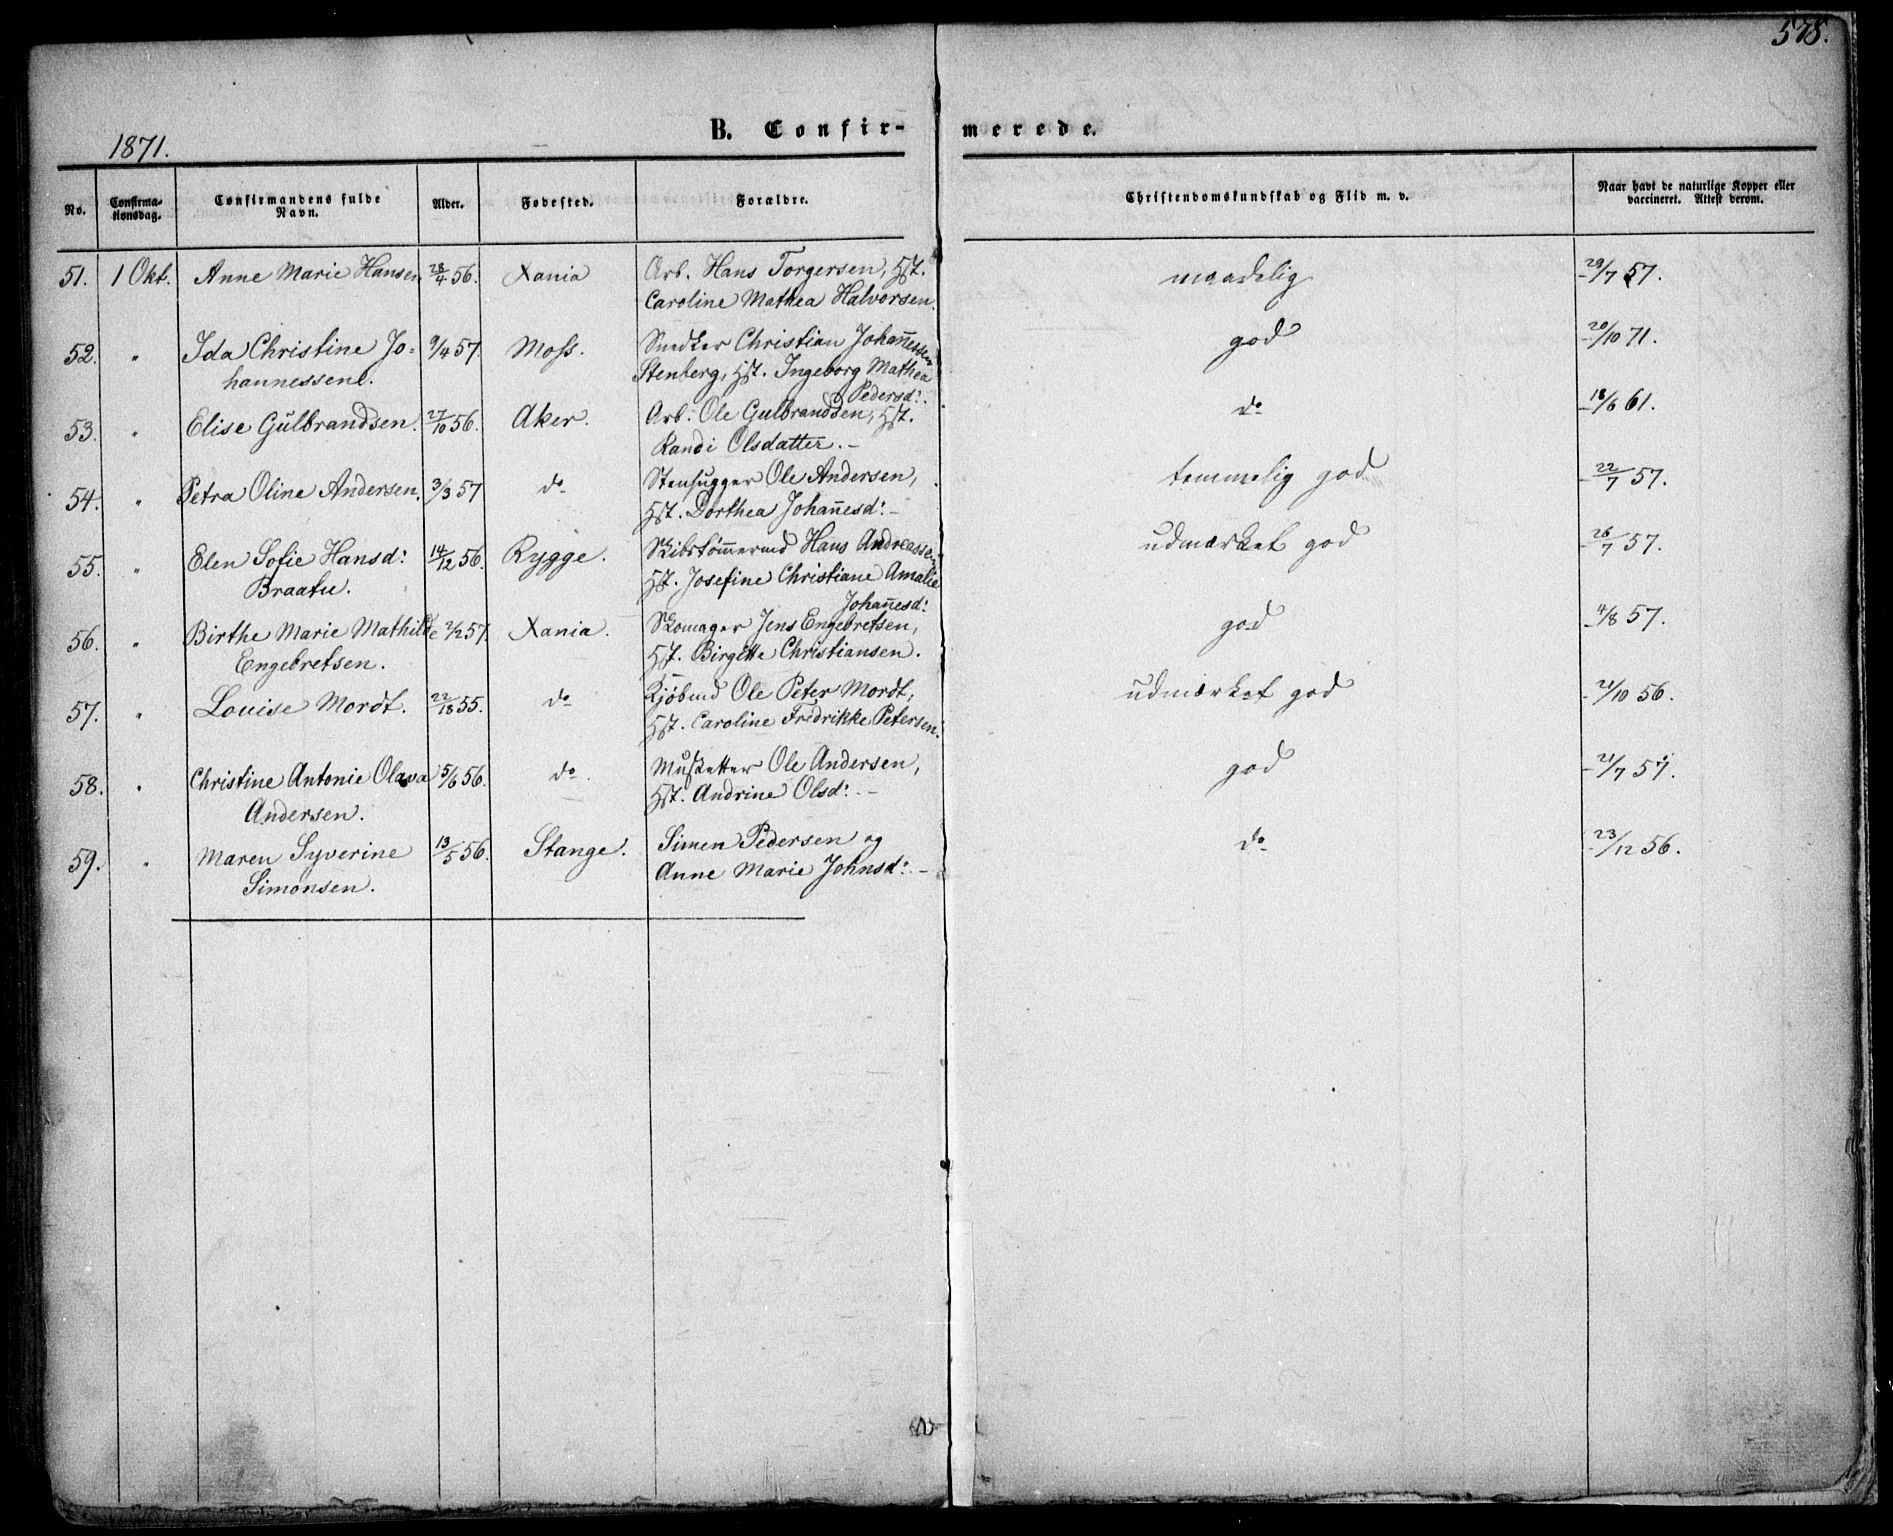 578.
1871.
B. Confir-
merede.
No.
Confirma-
tionsdag.
Confirmandens fulde
Navn.
Alder.
Fødested.
Forældre.
Christendomskundskab og Flid m. v.
Naar havt de naturlige Kopper eller
vaccineret. Attest derom.
51. 1 Okt. Anne Marie Hansen 28/4 56. Xania Arb. Hans Torgersen, Hst. maadelig 29/7 57.
Caroline Mathea Halvorsen.
52. " Ida Christine Jo= 9/4 57. Moss. Snedker Christian Johannessen god 20/10 71.
hannessen. Stenberg, Hst. Ingeborg Mathea
Pedersd:.
53. " Elise Gulbrandsen. 27/10 56. Aker. Arb. Ole Gulbrandsen, Hst. do 18/6 61.
Randi Olsdatter. -
54. " Petra Oline Andersen. 3/3 57 do Stenhugger Ole Andersen, temmelig god 22/7 57.
Hst. Dorthea Johannesd: -
55. " Elen Sofie Hansd: 14/12 56. Rygge. Skibstømmermd Hans Andreassen udmærket god 26/7 57.
Braaten. Hst. Josefine Christiane Amalie
Johannesd:
56. " Birthe Marie Mathilde 2/2 57. Xania. Skomager Jens Engebretsen, god 4/8 57.
Engebretsen. Hst. Birgitte Christiansen.
57. " Louise Mordt. 22/18 55. do Kjøbmd Ole Peter Mordt, udmærket god 21/10 56.
Hst. Caroline Fredrikke Petersen.
58. " Christine Antonie Olava 5/6 56. do. Musketter Ole Andersen, god 21/7 57.
Andersen. Hst. Andrine Olsd: -
59. " Maren Syverine 13/5 56. Stange. Simen Pedersen og do 23/12 56.
Simonsen. Anne Marie Johnsd: -